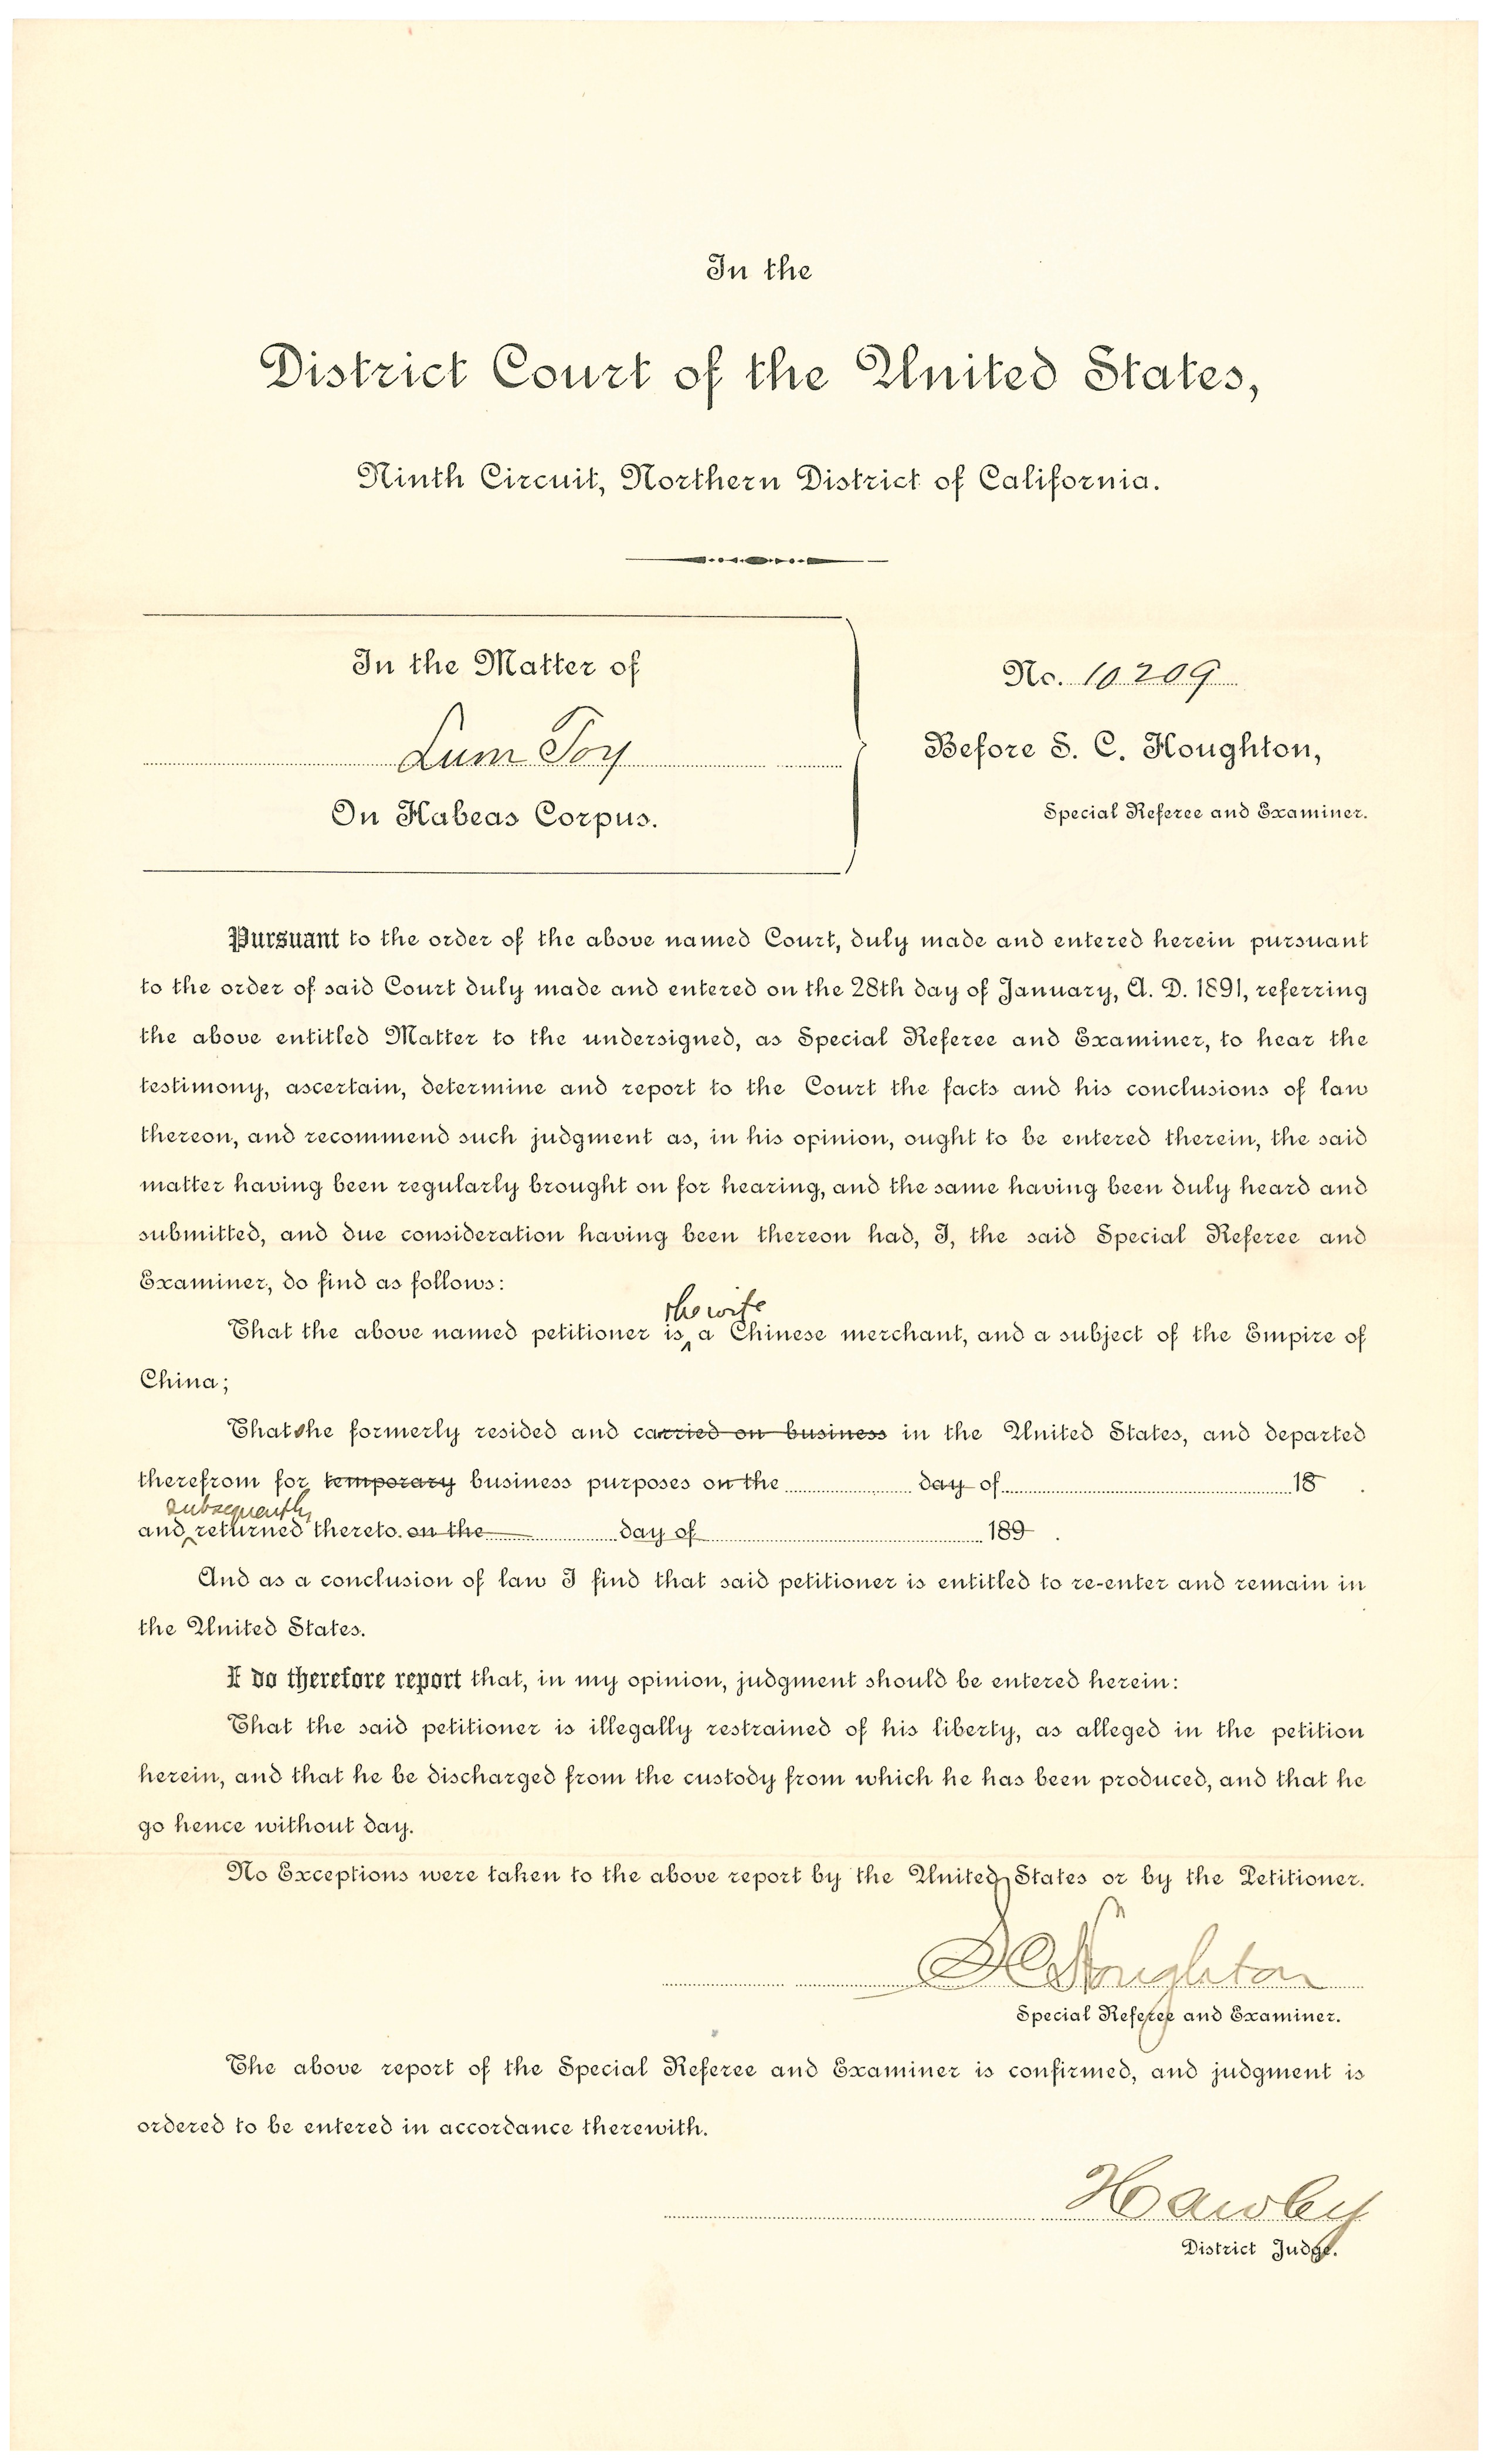 In the
District Court of the United States,
Ninth Circuit, Northern District of California.
In the Matter of
Lum Toy
On Habeas Corpus.
No. 10209
Before S. C. Houghton,
Special Referee and Examiner.
Pursuant to the order of the above named Court, duly made and entered herein pursuant
to the order of said Court duly made and entered on the 28th day of January, A. D. 1891, referring
the above entitled Matter to the undersigned, as Special Referee and Examiner, to hear the
testimony, ascertain, determine and report to the Court the facts and his conclusions of law
thereon, and recommend such judgment as, in his opinion, ought to be entered therein, the said
matter having been regularly brought on for hearing, and the same having been duly heard and
submitted, and due consideration having been thereon had, I, the said Special Referee and
Examiner, do find as follows:
the wife
That the above named petitioner is a Chinese merchant, and a subject of the Empire of
China;
That she formerly resided and carried on business in the United States, and departed
therefrom for temporary business purposes on the day of 18 .
subsequently
and returned thereto. on the day of 189 .
And as a conclusion of law I find that said petitioner is entitled to re-enter and remain in
the United States.
I do therefore report that, in my opinion, judgment should be entered herein:
That the said petitioner is illegally restrained of his liberty, as alleged in the petition
herein, and that he be discharged from the custody from which he has been produced, and that he
go hence without day.
No Exceptions were taken to the above report by the United States or by the Petitioner.
S C Houghton
Special Referee and Examiner.
The above report of the Special Referee and Examiner is confirmed, and judgment is
ordered to be entered in accordance therewith.
Hawley
District Judge.